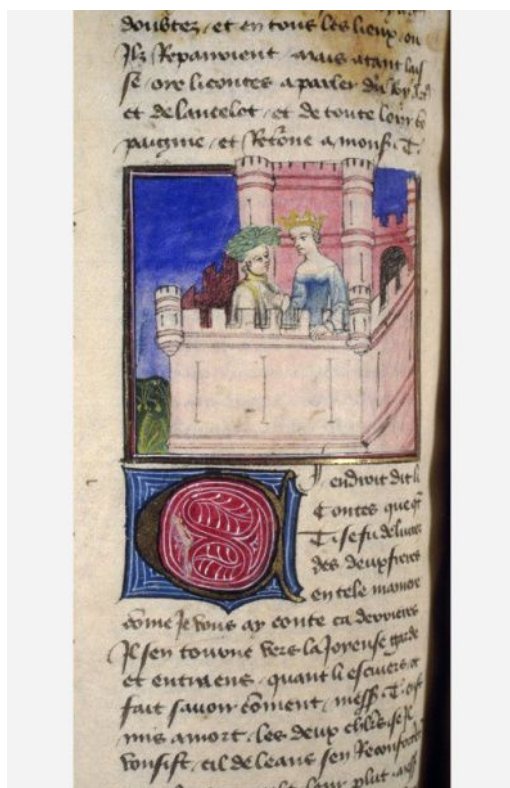 doubtez et en tous les lieux ou
Ilz Repairoient mais atant lais
se ore li contes a parler du Roy
et de lancelot et de toute leur co
paignie et Retorne a mons T.
endroit dit li
Contes que qt
T. se fu deliures
des deux freres
en tele maniere
come Je vous ay conte ca derrieres
Il sen tourne vers la Joyeuse garde
et entra ens quant li escuiers ot
fait sauoir coment mess T. ot
mis a mort les deux chlrs se Il
vousist cil de leans sen Reconfor
leur plut